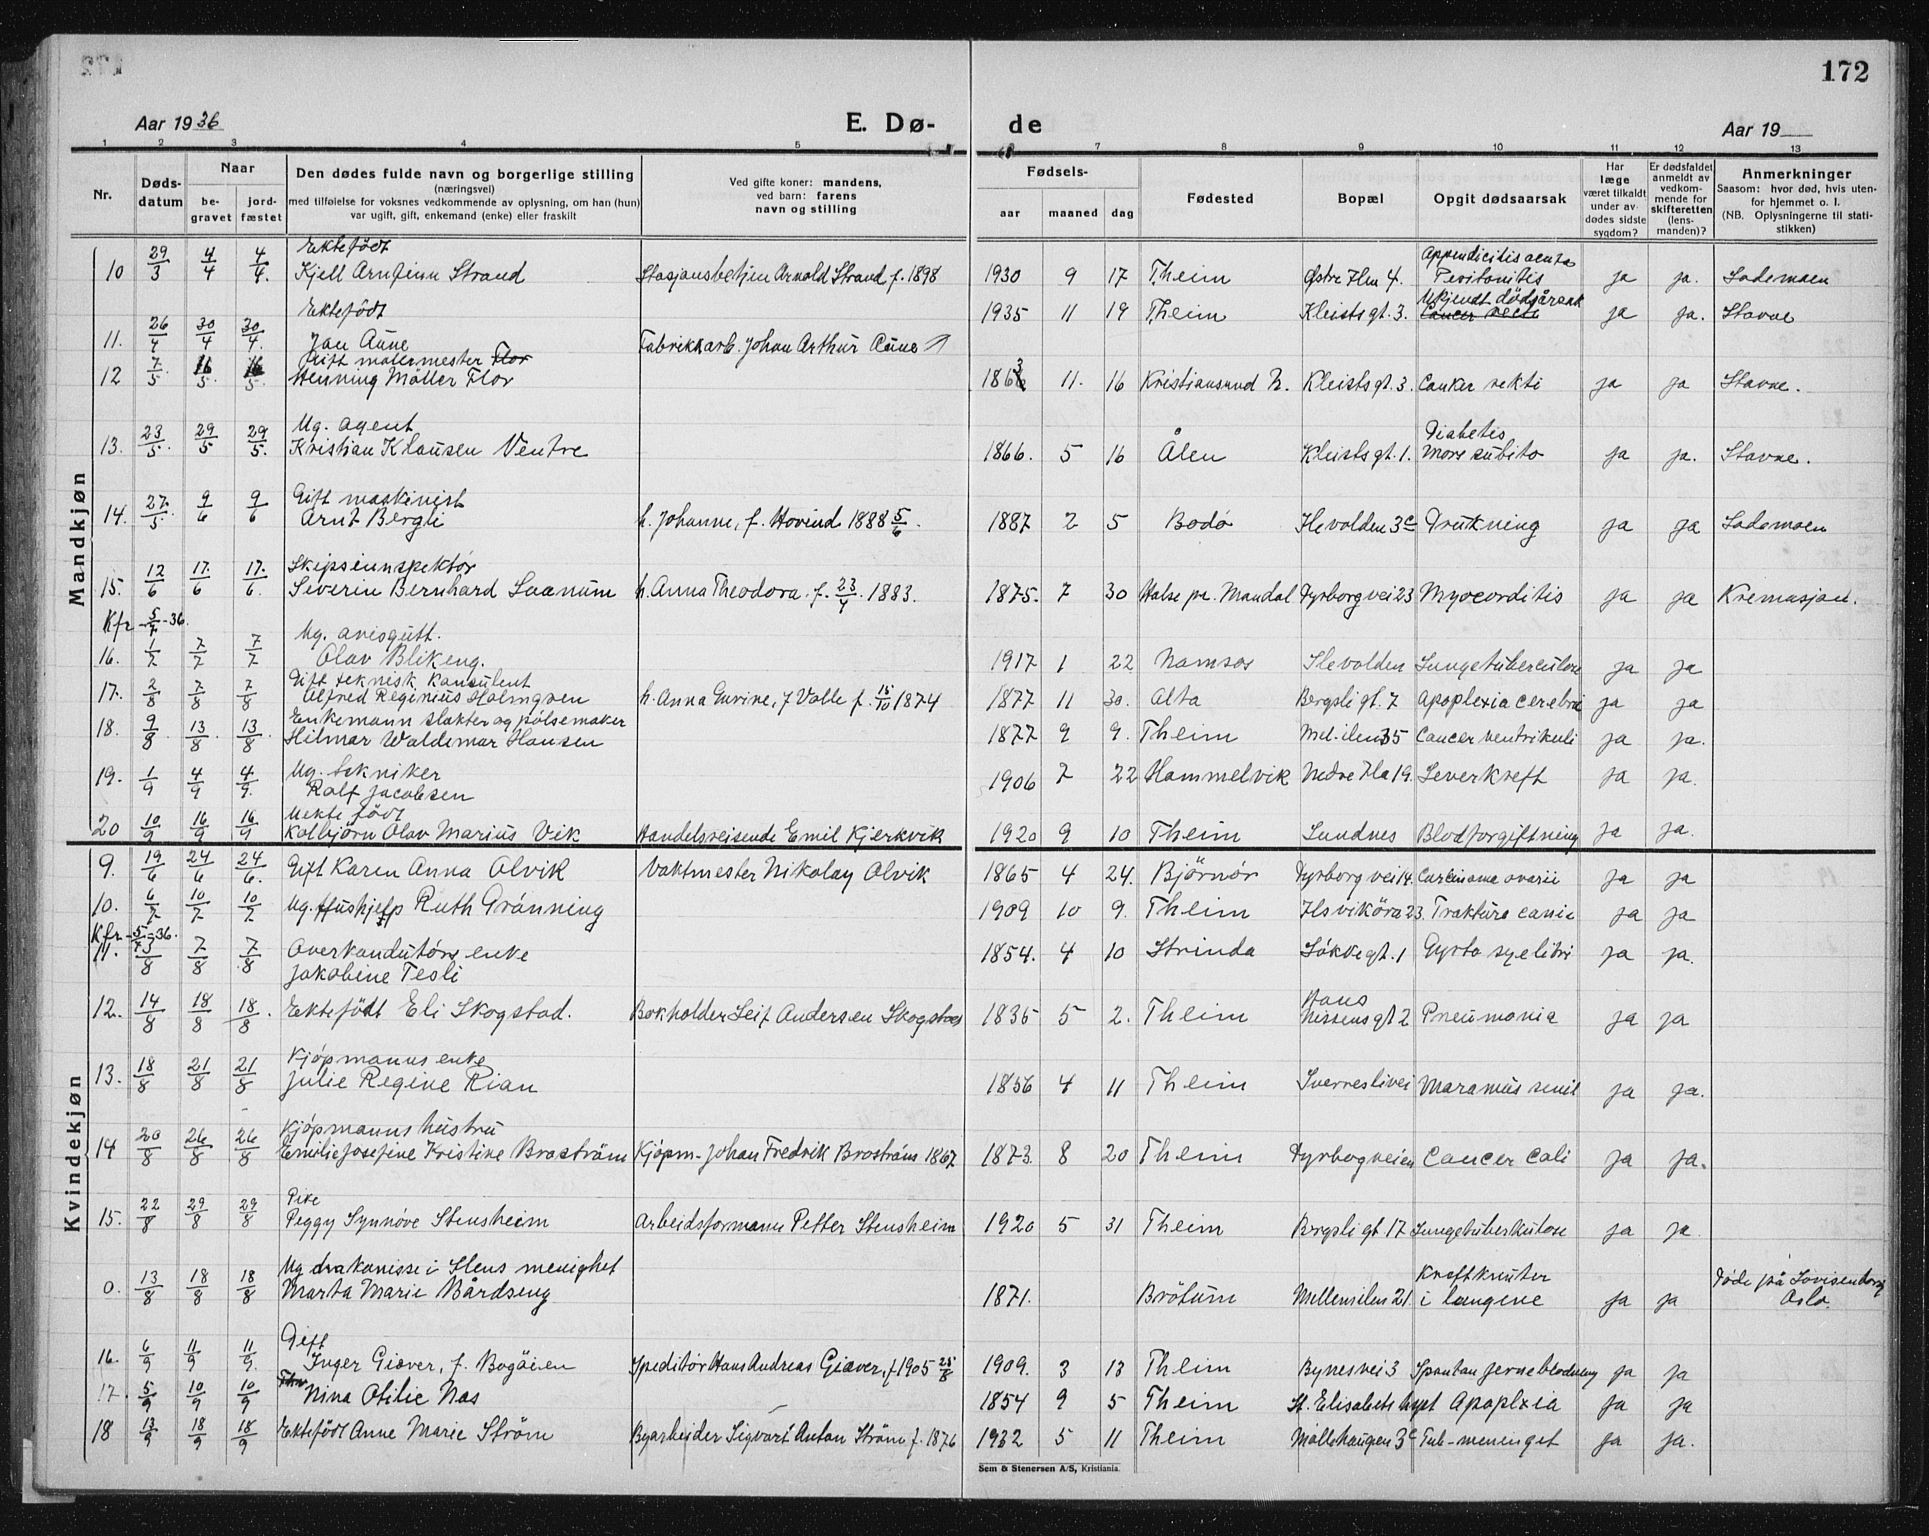 172
Aar 1936
E. Dø-
de
Aar 19
1 2 3 4 5 6 7 8 9 10 11 12 13
Nr.
Døds-
datum
Naar
be-
gravet
jord-
fæstet
Den dødes fulde navn og borgerlige stilling
(næringsvei)
med tilføielse for voksnes vedkommende av oplysning, om han (hun)
var ugift, gift, enkemand (enke) eller fraskilt
Ved gifte koner: mandens,
ved barn: farens
navn og stilling
Fødsels-
aar maaned dag
Fødested
Bopæl
Opgit dødsaarsak
Har
læge
været tilkaldt
under av-
dødes sidste
sygdom?
Er dødsfaldet
anmeldt av
vedkom-
mende for
skifteretten
(lens-
manden)?
Anmerkninger
Saasom: hvor død, hvis uten-
for hjemmet o. l.
(NB. Oplysningerne til stati-
stikken)
Mandkjøn
Ektefödt Appendicitis acuta
10 29/3 4/4 4/4. Kjell Arnfinn Strand Stasjonsbetjen Arnold Strand f. 1898 1930 9 17 Theim Østre Ilen 4. Peritonitis ja ja. Lademoen
Ektefödt Ukjendt dödsårsak
11. 26/4 30/4 30/4. Jan Aune Fabrikkarb. Johan Arthur Aune 1935 11 19 Theim Kleistsgt. 3. Cancer recti ja ja. Stavne
Gift malermester Flor
12 7/5. 16/5. 16/5. Henning Möller Flor 1863 11. 16 Kristiansund N. Kleistsgt. 3. Canker rekti ja ja Stavne.
Ug. agent Diabetes
13. 23/5. 29/5 29/5. Kristian Klausen Ventre 1866. 5 16 Ålen Kleistsgt. 1. Mors subito ja ja. Stavne.
Gift maskinist
14. 27/5. 9/6 9/6 Arnt Bergli h. Johanne, f. Hovind 1888 5/6. 1887 2 5 Bodø Ilevolden 3c Drukning ja ja Lademoen
Skipsinnspektør
15. 12/6 17/6 17/6. Severin Bernhard Svanum h. Anna Theodora f. 23/4. 1883. 1875. 7 30 Halse pr. Mandal Dyrborgvei 23 Myocorditis ja ja Kremasjon.
Kfr - 5/7 - 36.
Ug. avisgutt.
16. 1/7 7/7 7/7 Olav Blikeng. 1917 1 22 Namsos Ilevolden Lungetuberculose ja ja
Gift teknisk konsulent
17. 2/8 7/8 7/8 Alfred Reginius Holmgren h. Anna Gurine, f Valle f. 15/10 1874 1877 11 30. Alta Bergsli gt. 7 Apoplexia cerebri ja ja
Enkemann slakter og pölsemaker
18. 9/8 13/8 13/8. Hilmar Waldemar Hansen 1877 9 9. Theim Mel-ilen 35 Cancer ventrikuli ja ja.
Ug. tekniker
19. 1/9 4/9 4/9. Ralf Jacobsen 1906 7 22 Hammelvik Nedre Ila 19. Leverkreft ja ja.
Uekte födt
20 10/9 16/9 16/9 Kolbjörn Olav Marius Vik Handelsreisende Emil Kjerkvik 1920 9 10 Theim Sundnes Blodforgiftning ja ja.
Kvindekjøn
9. 19/6 24/6 24/6. Gift Karen Anna Olvik Vaktmester Nikolay Olvik 1865 4 24. Björnör Dyrborgvei 14. Carcinoma ovarii ja ja
10. 6/7 10/7 10/7 Ug. Hushjelp Ruth Grönning 1909 10 9. Theim Ilsviköra 23. Fraktura canie ja ja
Kfr - 5/7 - 36.
11. 3/8 7/8 7/8 Overkonduktörs enke 1854. 4 10 Strinda Løkkegt. 1 ja ja.
Jakobine Tesli
12. 14/8 18/8 18/8. Ektefödt Eli Skogstad. Bokholder Leif Andersen Skogstad 1835 5 2. Theim Hans Nissens gt 2 Pneumonia ja ja
Kjøpmanns enke
13. 18/8 21/8 21/8 Julie Regine Rian 1856 4 11 Theim Sverreslivei Maramus senil ja ja.
Kjøpmanns hustru
14 20/8 26/8 26/8 Emilie Josefine Kristine Broström Kjøpm. Johan Fredrik Broström 1867 1873. 8 20 Theim Dyrborgveien Cancer Coli ja ja.
Pike
15. 22/8 29/8 29/8 Peggy Synnöve Stensheim Arbeidsformann Petter Stensheim 1920 5 31 Theim Bergsli gt 17 Lungetuberkulose ja ja.
Ug diakonisse i Ilens menighet Kreftknuter Døde på Lovisenberg
0. 13/8 18/8 18/8 Marta Marie Bårdseng 1871. Brötum Mellemilen 21 i lungene ja ja Oslo.
Gift
16. 6/9 11/9 11/9. Inger Giæver, f. Bogöien Speditör Hans Andreas Giæver, f 1905 25/8 1909. 3 13 Theim Bynesvei 3 Spontan jerneblödning ja ja
17. 5/9 10/9 10/9 Nina Otilie Nas 1854 9 5 Theim St. Elisabets hosp Apoplexia ja ja
18 13/9 18/9 18/9 Ektefödt Anne Marie Ström Byarbeider Sigvart Anton Ström f. 1876 1932 5 11 Theim Möllehaugen 3c Tub-meninget ja ja.
Sem & Stenersen A/S, Kristiania.